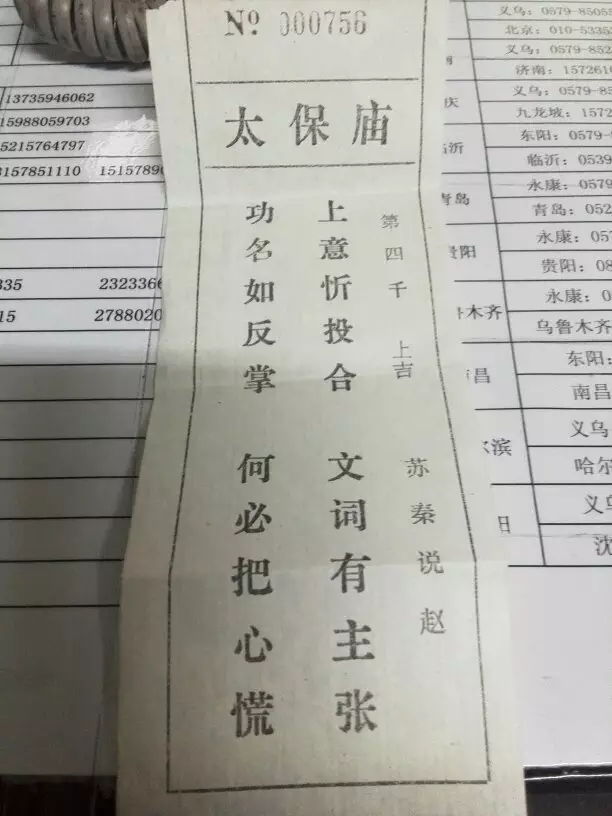 № 000756
太保庙
第四千 上吉 苏秦说赵
上意忻投合 文词有主张
功名如反掌 何必把心慌
13735946062
15988059703
15215764797
3157851110 1515789
335 2323366
15 2788020
义乌：0579-8505
北京：010-5335
义乌：0579-852
济南：1572616
义乌：0579-85
九龙坡：1572
东阳：0579-
临沂：0539
永康：0579
青岛：052
永康：057
贵阳：08
永康：0
乌鲁木齐
东阳：
南昌
义乌
哈尔
义乌
沈
庆
临沂
青岛
贵阳
木齐
昌
尔滨
阳